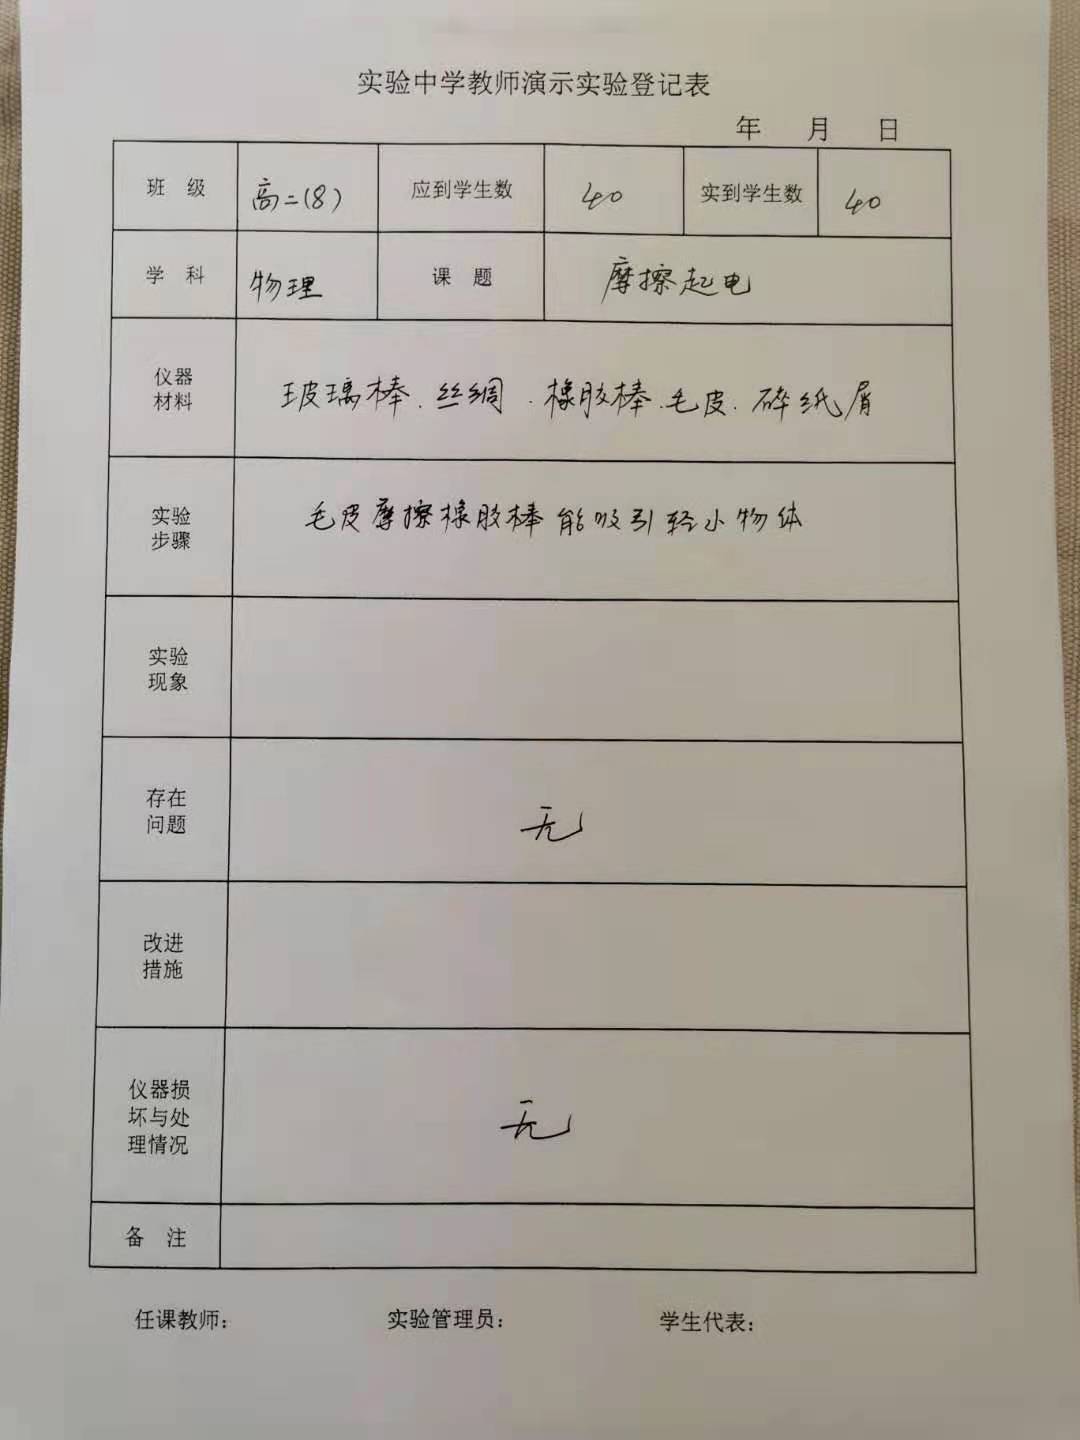 实验中学教师演示实验登记表
年 月 日
班 级 高二(8) 应到学生数 40 实到学生数 40
学 科 物理 课 题 摩擦起电
仪器
材料
玻璃棒.丝绸.橡胶棒.毛皮.碎纸屑
实验
步骤
毛皮摩擦橡胶棒能吸引轻小物体
实验
现象
存在
问题
无
改进
措施
仪器损
坏与处
理情况
无
备 注
任课教师: 实验管理员: 学生代表: